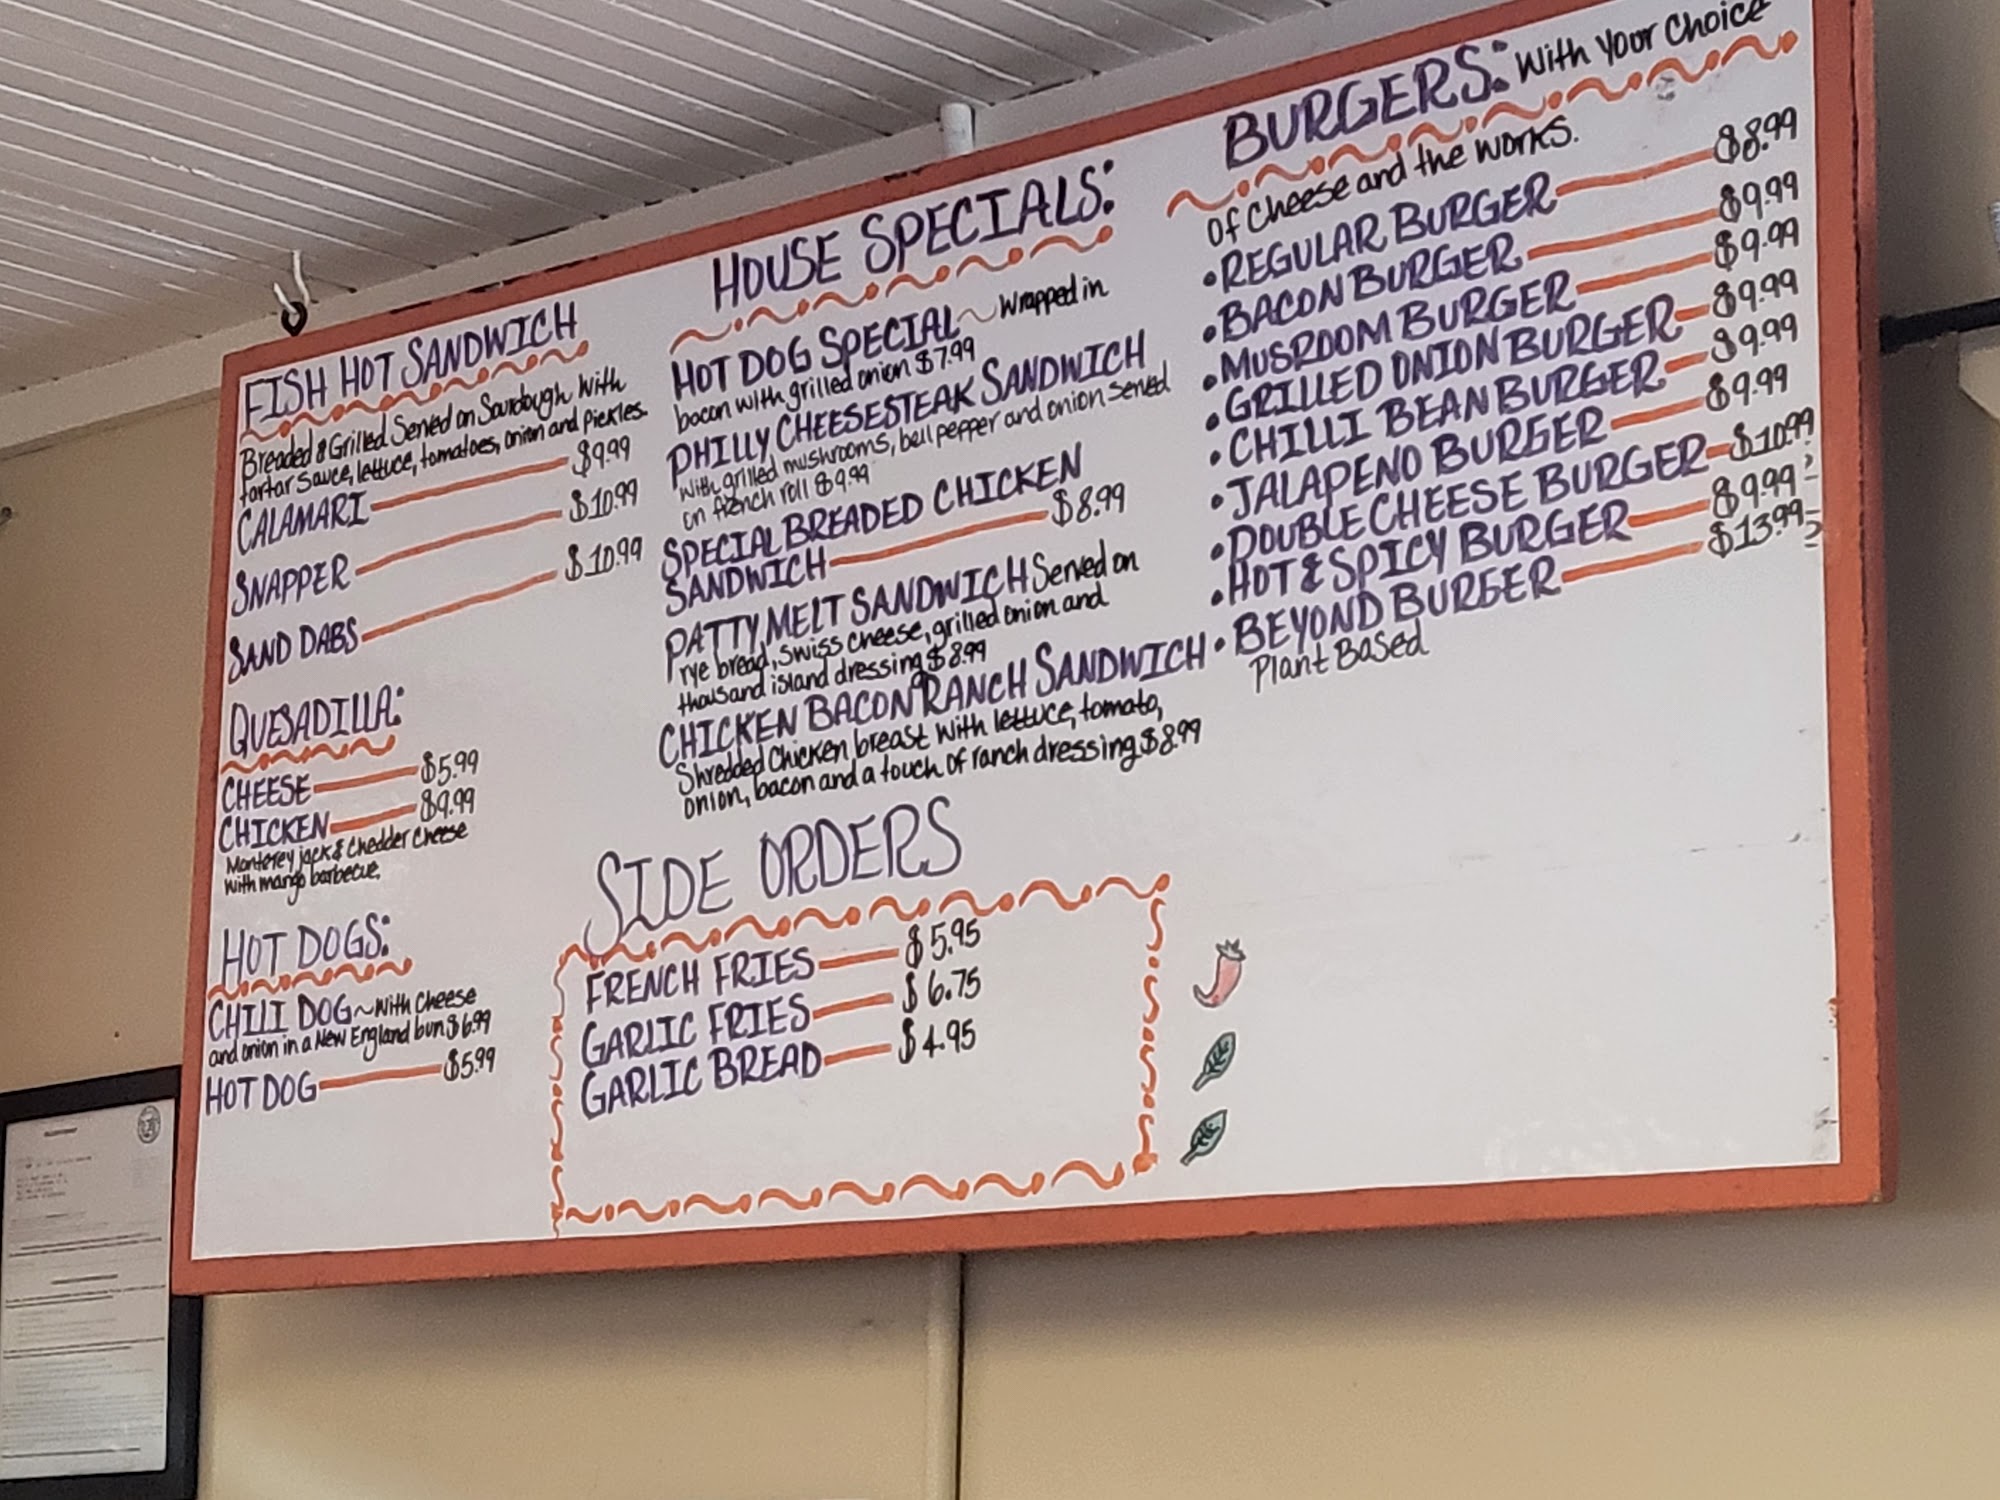 FISH HOT SANDWICH
Breaded & Grilled Served on Sourdough With
tartar sauce, lettuce, tomatoes, onion and pickles.
CALAMARI $9.99
SNAPPER $10.99
SAND DABS $10.99
QUESADILLA:
CHEESE $5.99
CHICKEN $9.99
Monterey jack & Chedder Cheese
with mango barbecue.
HOT DOGS:
CHILI DOG~With Cheese
and onion in a New England bun $6.99
HOT DOG $5.99
HOUSE SPECIALS:
HOT DOG SPECIAL~Wrapped in
bacon with grilled onion $7.99
PHILLY CHEESESTEAK SANDWICH
with grilled mushrooms, bell pepper and onion served
on french roll $9.99
SPECIAL BREADED CHICKEN
SANDWICH $8.99
PATTY MELT SANDWICH Served on
rye bread, swiss cheese, grilled onion and
thousand island dressing $8.99
CHICKEN BACON RANCH SANDWICH
Shredded Chicken breast with lettuce, tomato,
onion, bacon and a touch of ranch dressing $8.99
SIDE ORDERS
FRENCH FRIES $5.95
GARLIC FRIES $6.75
GARLIC BREAD $4.95
BURGERS: With Your Choice
Of Cheese and the works.
•REGULAR BURGER $8.99
•BACON BURGER $9.99
•MUSROOM BURGER $9.99
•GRILLED ONION BURGER $9.99
•CHILLI BEAN BURGER $9.99
•JALAPENO BURGER $9.99
•DOUBLE CHEESE BURGER $10.99
•HOT & SPICY BURGER $9.99
•BEYOND BURGER $13.99
Plant Based